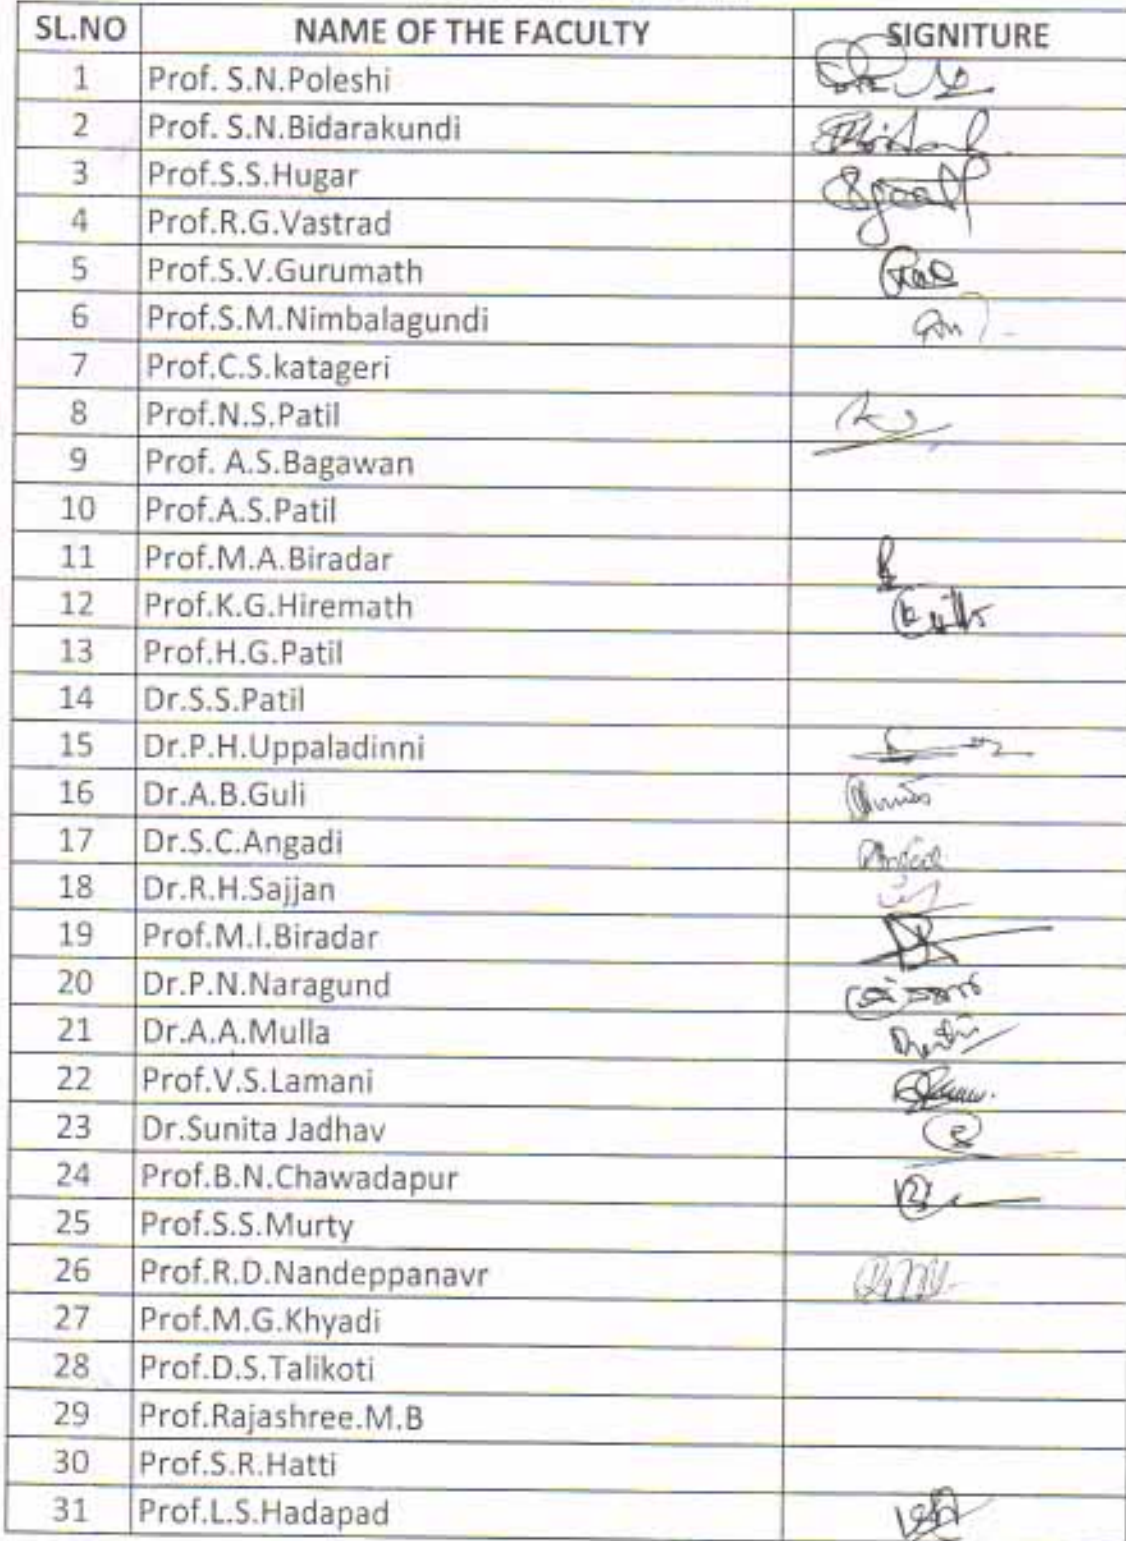 SL.NO NAME OF THE FACULTY SIGNITURE
1 Prof. S.N.Poleshi
2 Prof. S.N.Bidarakundi
3 Prof.S.S.Hugar
4 Prof.R.G.Vastrad
5 Prof.S.V.Gurumath
6 Prof.S.M.Nimbalagundi
7 Prof.C.S.katageri
8 Prof.N.S.Patil
9 Prof. A.S.Bagawan
10 Prof.A.S.Patil
11 Prof.M.A.Biradar
12 Prof.K.G.Hiremath
13 Prof.H.G.Patil
14 Dr.S.S.Patil
15 Dr.P.H.Uppaladinni
16 Dr.A.B.Guli
17 Dr.S.C.Angadi
18 Dr.R.H.Sajjan
19 Prof.M.I.Biradar
20 Dr.P.N.Naragund
21 Dr.A.A.Mulla
22 Prof.V.S.Lamani
23 Dr.Sunita Jadhav
24 Prof.B.N.Chawadapur
25 Prof.S.S.Murty
26 Prof.R.D.Nandeppanavr
27 Prof.M.G.Khyadi
28 Prof.D.S.Talikoti
29 Prof.Rajashree.M.B
30 Prof.S.R.Hatti
31 Prof.L.S.Hadapad